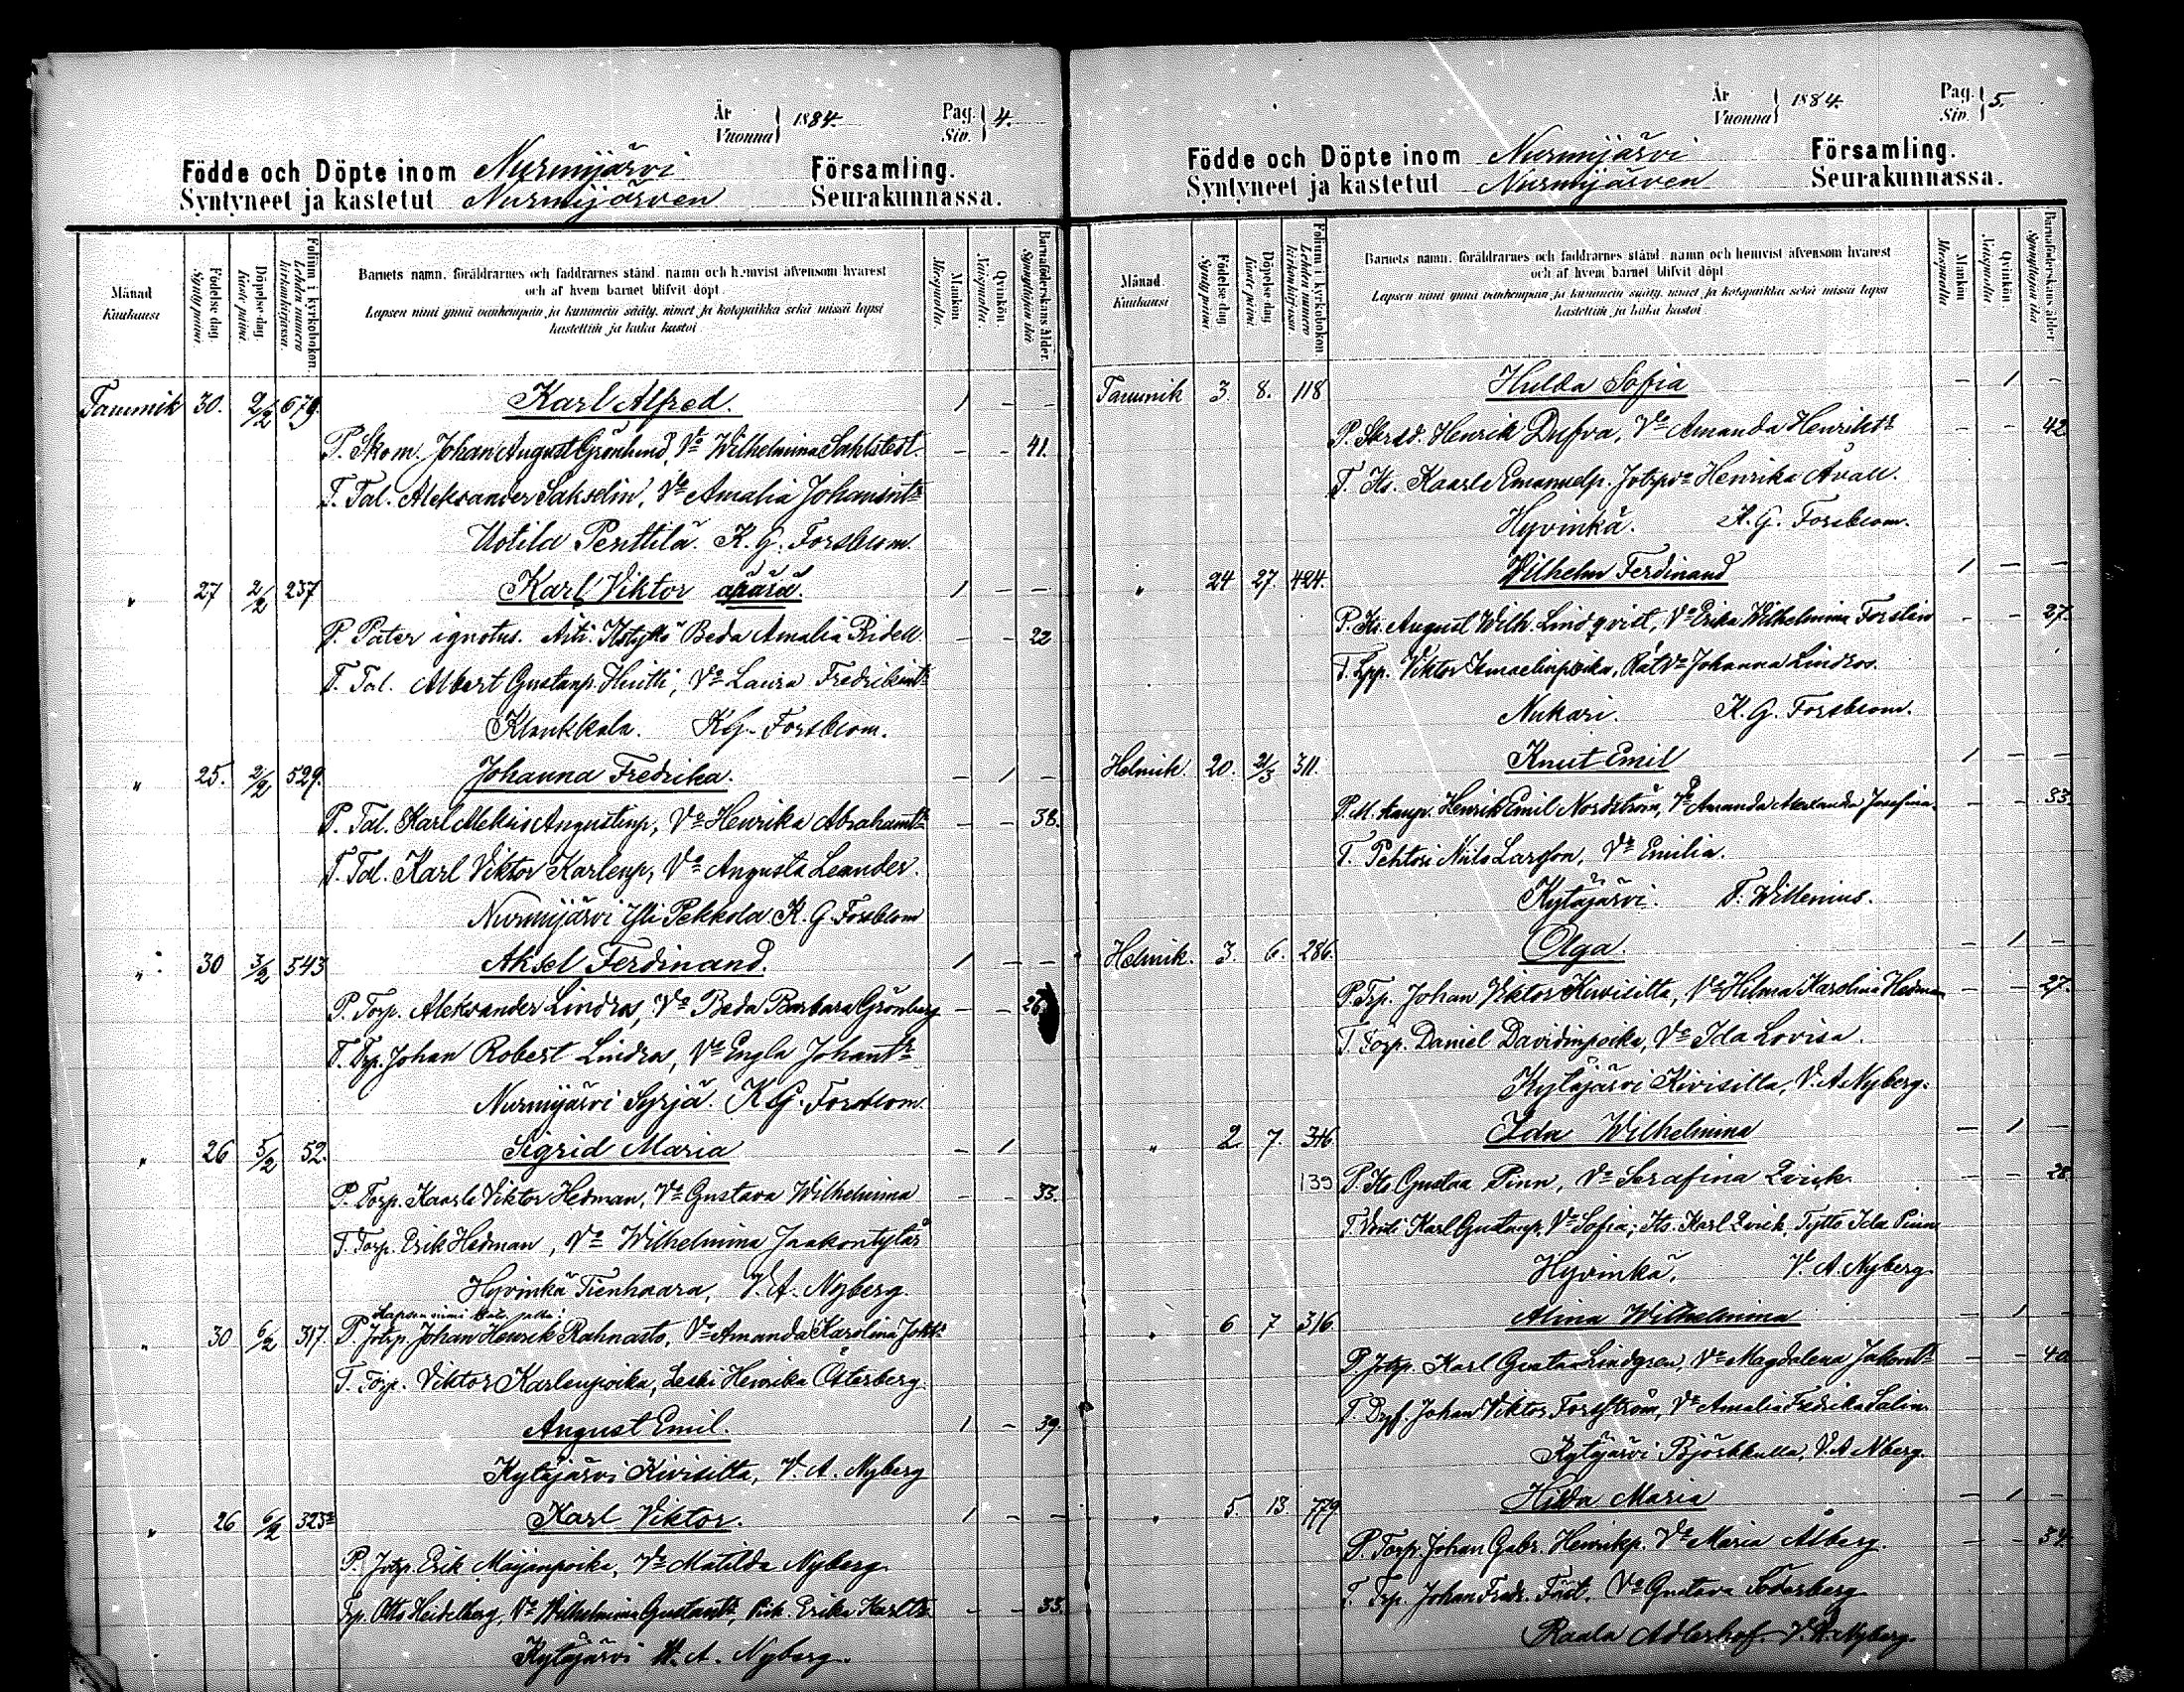 År
Vuonna 1884. Pag. Siv. 4.
Födde och Döpte inom Nurmijärvi Församling.
Syntyneet ja kastetut Nurmijärven Seurakunnassa.
Månad Kuukausi
Födelse dag. Synty päivä.
Döpelse dag. Kaste päivä.
Folium i kyrkobokon. Lehden numero kirkonkirjassa.
Barnets namn, föräldrarnes och faddrarnes stånd, namn och hemvist äfvensom hvarest
och af hvem barnet blifvit döpt.
Lapsen nimi ynnä vanhempain ja kummein sääty, nimet ja kotopaikka sekä missä lapsi
kastettiin ja kuka kastoi
Mankön Miespuolia.
Qvinkön. Naispuolia.
Barnaföderskans ålder. Synnyttäjän ikä
Tammik 30. 2/2 679. Karl Alfred. 1 - -
P. Skom. Johan August Grönlund, Vo Wilhelmina Sahlstedt. - - 41.
T. Tal. Aleksander Sakselin, Vo Amalia Johanintr
Uotila Penttilä. K. G. Forsblom.
" 27 2/2 237 Karl Viktor äpärä. 1 - -
P. Pater ignotus. Äiti: Itstyttö Beda Amalia Ridell. - - 22
T. Tal. Albert Gustanp. Huitti, Vo Laura Fredrikintr
Klaukkala. K. G. Forsblom.
" 25. 2/2 529. Johanna Fredrika. - 1 -
P. Tal. Karl Aleksis Augustinp, Vo Henrika Abrahamtr - - 38.
T. Tal. Karl Viktor Karlenp, Vo Augusta Leander.
Nurmijärvi Yli Pekkola K. G. Forsblom
" 30 3/2 543 Aksel Ferdinand. 1 - -
P. Torp. Aleksander Lindros, Vo Beda Barbara Grönberg - - 26
T. Trp. Johan Robert Lindros, Vo Engla Johantr
Nurmijärvi Syrjä. K. G. Forsblom
" 26 5/2 52. Sigrid Maria - 1
P. Torp. Kaarle Viktor Hedman, Vo Gustava Wilhelmina - - 33.
T. Torp. Erik Hedman, Vo Wilhelmina Jaakontytär
Hyvinkä Tienhaara, V. A. Nyberg.
Lapsen nimi
" 30 6/2 317. P. Jotrp. Johan Henrik Rahnasto, Vo Amanda Karolina
T. Torp. Viktor Karlenpoika, Leski Henrika Österberg.
August Emil. 1 - 39.
Kytäjärvi Kivisilta, V. A. Nyberg
" 26 6/2 323 Karl Viktor. 1 - -
P. Jotrp. Erik Maijanpoika, Vo Matilda Nyberg
Trp. Otto Heidelberg, Vo Wilhelmina Gustantr, Piik. Erika Karltr. - - 33.
Kytäjärvi V. A. Nyberg.
År
Vuonna 1884. Pag. Siv. 5.
Födde och Döpte inom Nurmijärvi Församling.
Syntyneet ja kastetut Nurmijärven Seurakunnassa.
Månad. Kuukausi
Födelse dag. Synty päivä
Döpelse dag. Kaste päivä
Folium i kyrkobokon. Lehden numero kirkonkirjassa.
Barnets namn, föräldrarnes och faddrarnes stånd, namn och hemvist äfvensom hvarest
och af hvem barnet blifvit döpt
Lapsen nimi ynnä vanhempain ja kummein sääty, nimet ja kotopaikka sekä missä lapsi
kastettiin ja kuka kastoi
Mankön Miespuolia
Qvinkön. Naispuolia
Barnaföderskans ålder Synnyttäjän ikä
Tammik 3. 8. 118 Hulda Sofia - 1 -
P. Henrik Dufva, Vo Amanda Henriktr - - 42
T. Its. Kaarle Emanuelp. Jotrpvo Henrika Avall.
Hyvinkä. K. G. Forsblom.
" 24 27. 424. Wilhelm Ferdinand 1 - -
P. Its. August Wilh. Lindqvist, Vo Erika Wilhelmina Forslin - - 27.
T. Lpp. Viktor Ismaelinpoika, Rätvo Johanna Lindros.
Nukari. K. G. Forsblom.
Helmik. 20. 21/3 311. Knut Emil 1 - -
P. M. Henrik Emil Nordström, Vo Amanda Alexandra Josefina. - - 33
T. Pehtori Niils Larsson, Vo Emilia.
Kytäjärvi. F. Willenius.
Helmik. 3. 6. 286. Olga. - 1 -
P. Trp. Johan Viktor Kivisilta, Vo Hilma Karolina Hedman - - 27.
T. Torp. Daniel Davidinpoika, Vo Ida Lovisa.
Kytäjärvi Kivisilta, V. A. Nyberg.
" 2 7. 316. Ida Wilhelmina - 1 -
139 P. Its Gustaa Pinn, Vo Serafina Qvick. - - 28
T. Vouti Karl Gustanp, Vo Sofia; Its. Karl Qvick, Tyttö Ida Pinn
Hyvinkä, V. A. Nyberg
" 6 7 316 Alma Wilhelmina - 1 -
P. Jotrp. Karl Gustaa Lindgren, Vo Magdalena Jakobtr - - 40
T. Johan Viktor Forsström, Vo Amalia Fredrika Salin
Kytäjärvi Björkkulla, V. A. Nberg.
" 5. 13. 779 Hilda Maria - 1 -
P. Torp. Johan Gabr. Henrikp. Vo Maria Alberg. - - 34.
T. Trp. Johan Fredr. Fast, Vo Gustava Söderberg
Raala Adlerhof. V. A. Nyberg.